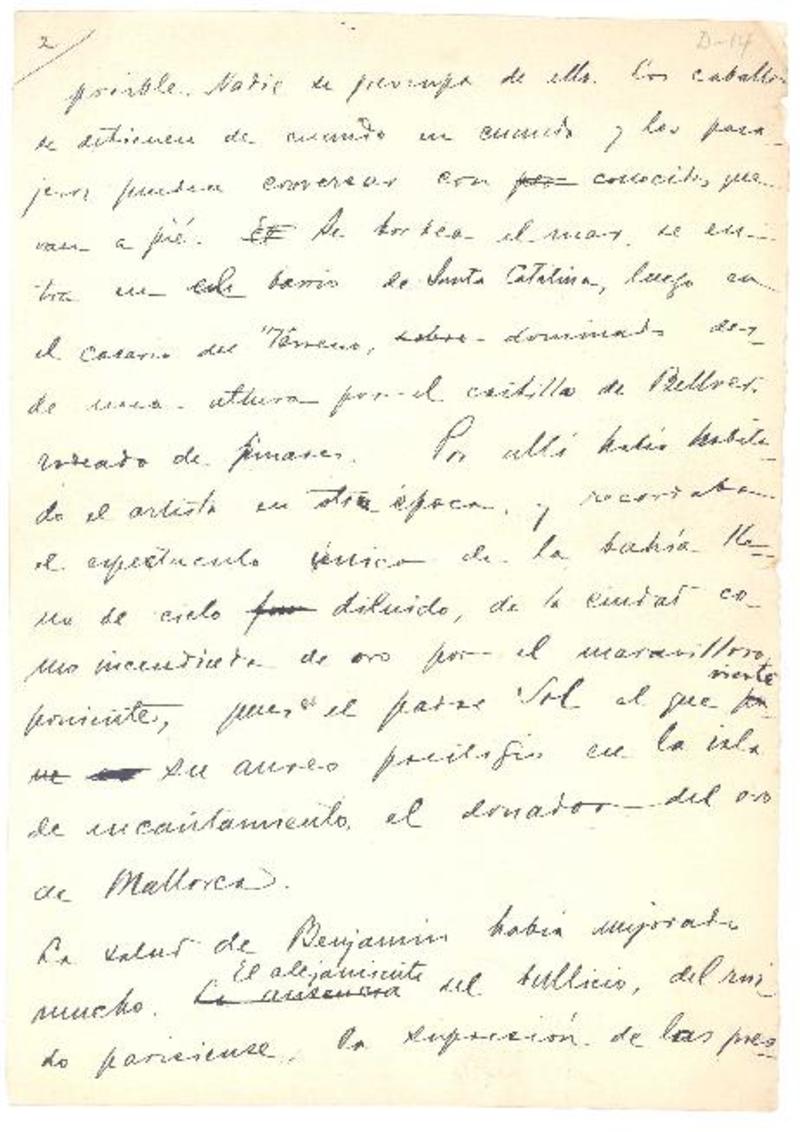 2
D-14
posible. Nadie se preocupa de ello. Los caballos
se detienen de cuando en cuando y los pasa-
jeros pueden conversar con conocidos que
van a pié. Se bordea el mar, se en-
tra en el barrio de Santa Catalina, luego en
el caserío del Terreno, dominado des-
de una altura por el castillo de Bellver,
rodeado de pinares. Por allí había habita-
do el artista en otra época, y recordaba
el espectáculo único de la bahía lle-
na de cielo diluido, de la ciudad co-
mo incendiada de oro por el maravilloso
poniente, pues es el padre Sol el que vierte
su aureo privilegio en la isla
de encantamiento, el donador del oro
de Mallorca.
La salud de Benjamín había mejorado
mucho. La ausencia El alejamiento del bullicio, del rui-
do parisiense, la supresión de las preo-